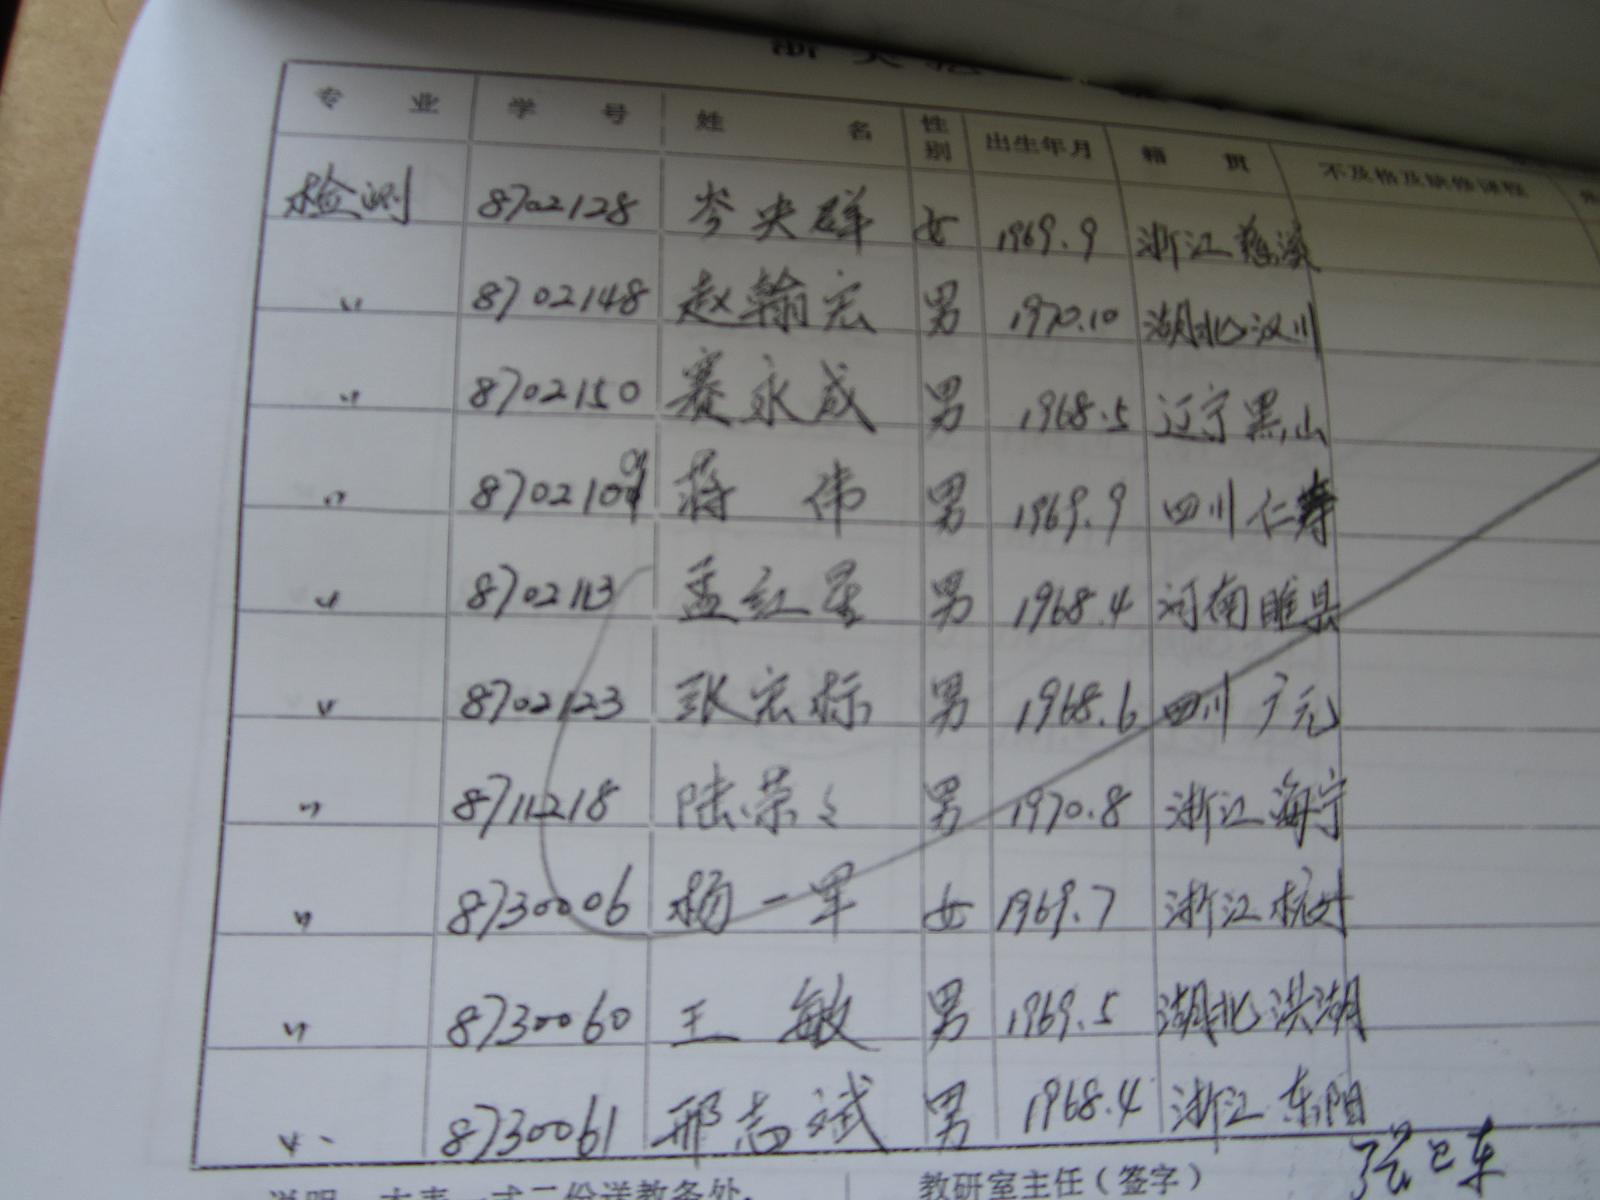 专 业 学 号 姓 名 性别 出生年月 籍 贯 不及格及缺修课程
检测 8702128 岑央群 女 1969.9 浙江慈溪
〃 8702148 赵翰宏 男 1970.10 湖北汉川
〃 8702150 赛永成 男 1968.5 辽宁黑山
〃 蒋伟 男 1969.9 四川仁寿
〃 8702113 孟红星 男 1968.4 河南睢县
〃 8702123 张宏标 男 1968.6 四川广元
〃 8711218 陆荣〻 男 1970.8 浙江海宁
〃 8730006 杨一军 女 1969.7 浙江杭州
〃 8730060 王敏 男 1969.5 湖北洪湖
〃 8730061 邢志斌 男 1968.4 浙江东阳
说明 本表一式二份送教务处. 教研室主任(签字)